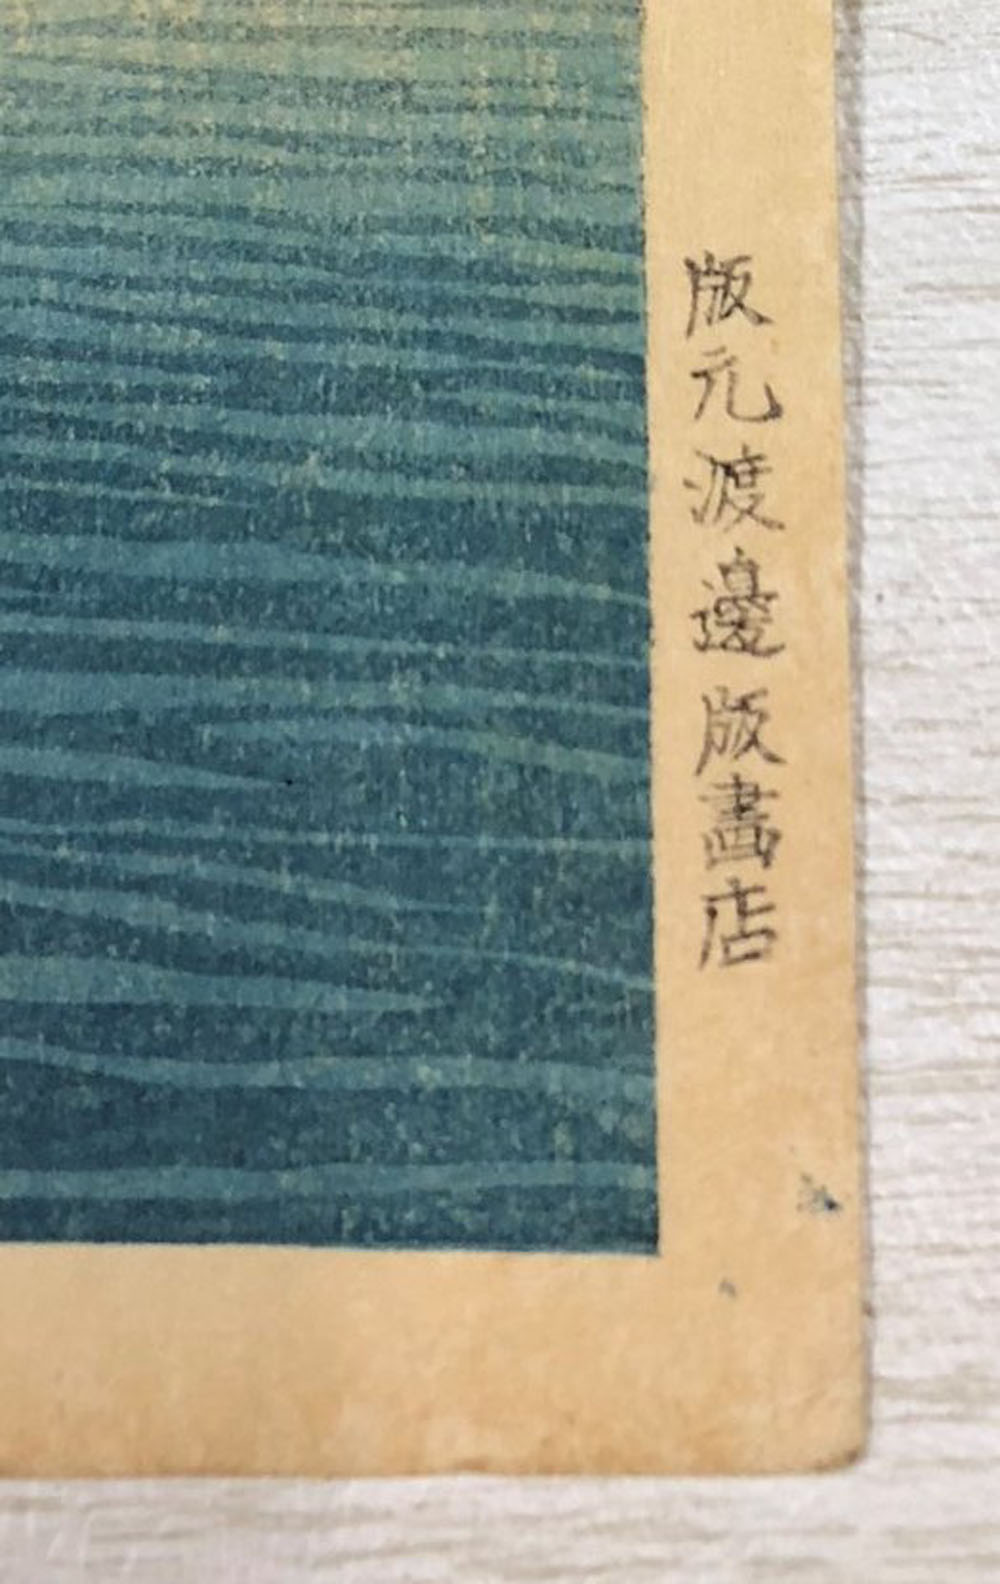 版元渡邊版畫店